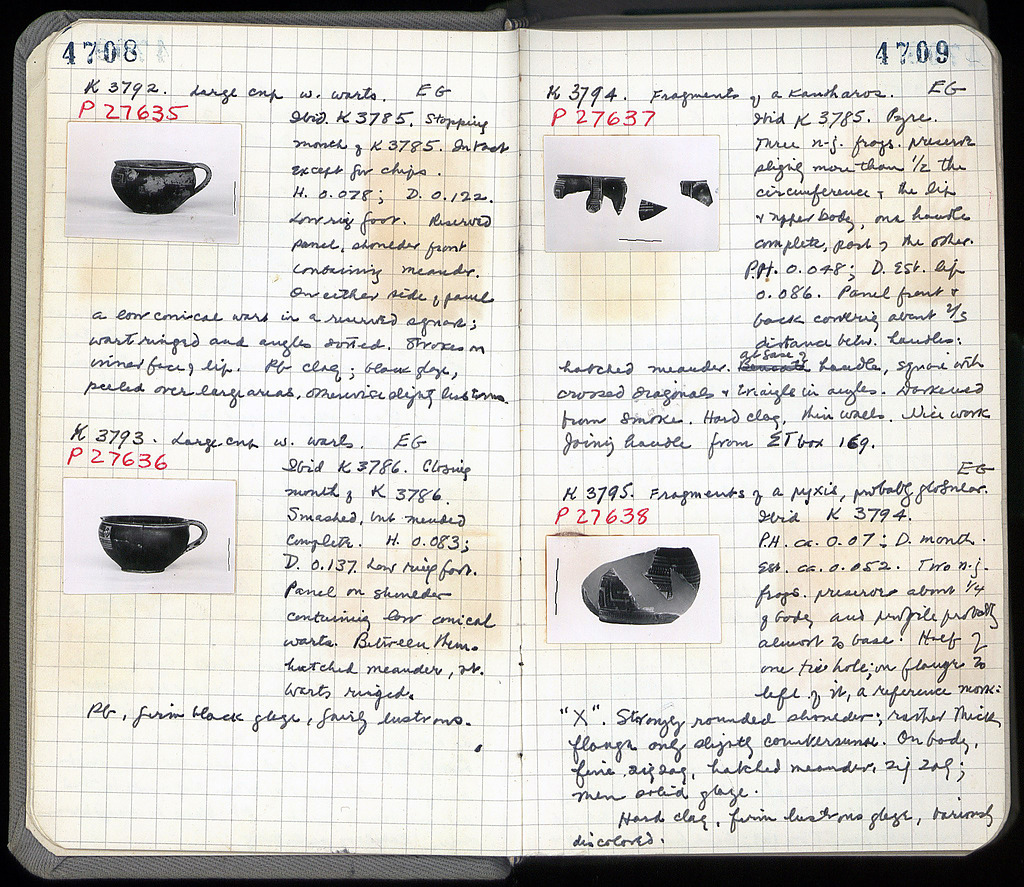 4708
K 3792. Large cup w. warts. EG
P 27635
Ibid. K 3785. Stopping
mouth of K 3785. Intact
except for chips.
H. 0.078; D. 0.122.
Low ring foot. Reserved
panel, shoulder front
containing meander.
On either side of panel
a low conical wart in a reserved square;
wart ringed and angles dotted. Strokes on
inner face of lip. PB clay; black glaze,
peeled over large areas, otherwise slightly lustrous.
K 3793. Large cup w. warts. EG
P 27636
Ibid K 3786. Closing
mouth of K 3786.
Smashed, but mended
complete. H. 0.083;
D. 0.137. Low ring foot.
Panel on shoulder
containing low conical
warts. Between them
hatched meander, rt.
Warts ringed.
PB, firm black glaze, fairly lustrous.
4709
K 3794. Fragments of a Kantharos. EG
P 27637
Ibid K 3785. Pyre.
Three n-j. frags. preserve
slightly more than 1/2 the
circumference of the lip
& upper body, one handle
complete, part of the other.
P.H. 0.048; D. Est. lip
0.086. Panel front &
back covering about 2/3
distance betw. handles:
hatched meander. Beneath at base of handle, square with
crossed diagonals & triangle in angles. Darkened
from smoke. Hard clay, thin walls. Nice work
Joining handle from ET box 169.
EG
K 3795. Fragments of a pyxis, probably globular.
P 27638
Ibid K 3794.
P.H. ca. 0.07; D. mouth.
est. ca. 0.052. Two n.j.
frags. preserve about 1/4
of body and profile probably
almost to base. Half of
one tie hole; on flange to
left of it, a reference mark:
"X". Strongly rounded shoulder; rather thick
flange only slightly countersunk. On body,
fine zigzag, hatched meander, zig zag;
then solid glaze.
Hard clay, firm lustrous glaze, variously
discolored.